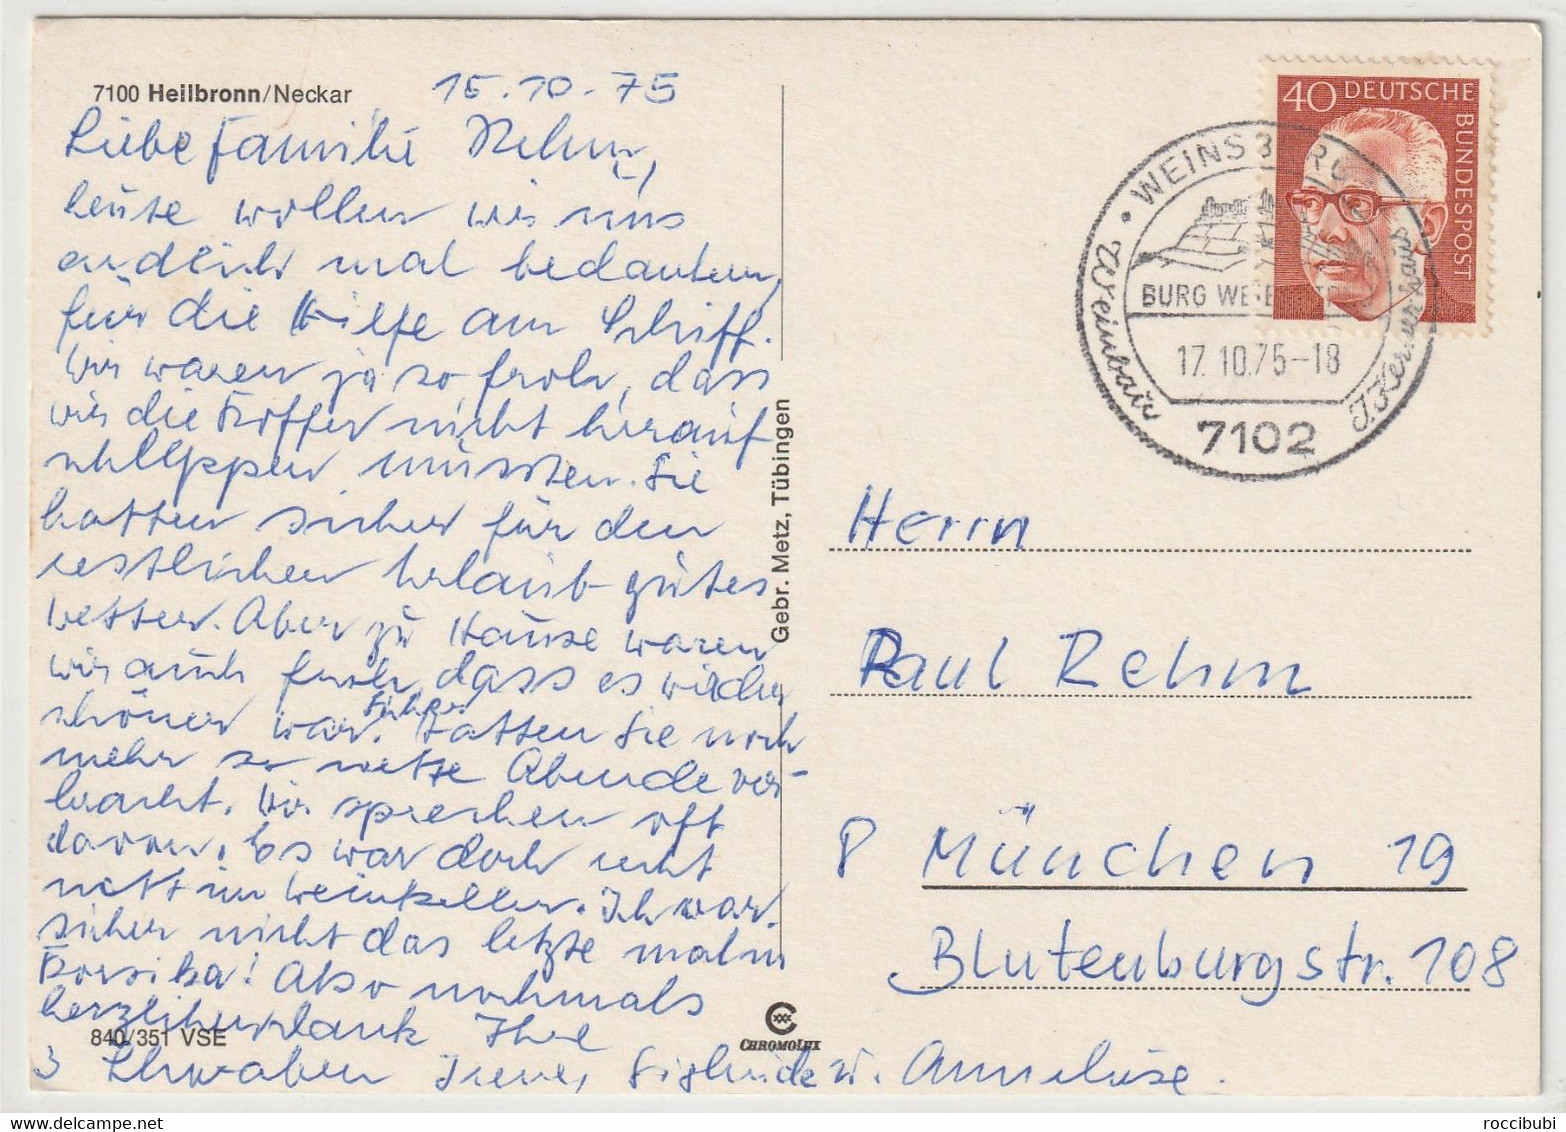 7100 Heilbronn/Neckar
15.10.75
Liebe Familie Rehm,
heute wollen wir uns
endlich mal bedanken,
für die Hilfe am Schiff.
Wir waren ja so froh, dass
wir die Koffer nicht herauf
schleppen mussten. Sie
hatten sicher für den
restlichen Urlaub gutes
Wetter. Aber zu Hause waren
wir auch froh, dass es wieder
schöner war. Sicher
hatten Sie noch
mehr so nette Abende ver-
bracht. Wir sprechen oft
davon. Es war doch recht
nett im Weinkeller. Ich war
sicher nicht das letzte mal in
Korsika! Also nochmals
herzlichen Dank Ihre
3 Schwaben Irene, Sieglinde u. Anneliese.
840/351 VSE
Gebr. Metz, Tübingen
CHROMOLUX
40 DEUTSCHE
BUNDESPOST
WEINSBERG
BURG WEIBERTREU
17.10.75-18
7102
Weinbau
J. Kernerhaus
Herrn
Paul Rehm
8 München 19
Blutenburgstr. 108
roccibubi